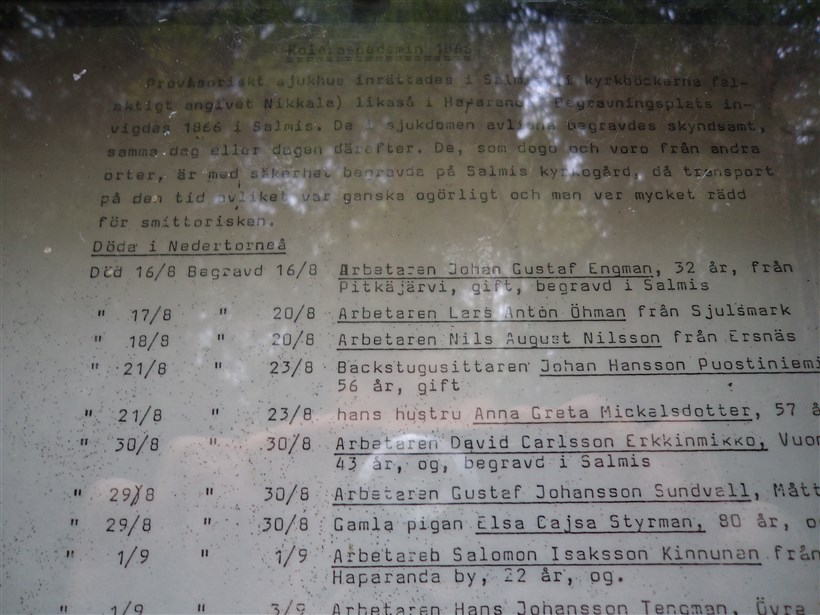 Koleraepedemin 1866
Provisoriskt sjukhus inrättades i Salmis (i kyrkböckerna fel-
aktigt angivet Nikkala) likaså i Haparanda. Begravningsplats in-
vigdes 1866 i Salmis. De i sjukdomen avlidna begravdes skyndsamt,
samma dag eller dagen därefter. De, som dogo och voro från andra
orter, är med säkerhet begravda på Salmis kyrkogård, då transport
på den tid avliket var ganska ogörligt och man var mycket rädd
för smittorisken.
Döda i Nedertorneå
Död 16/8 Begravd 16/8 Arbetaren Johan Gustaf Engman, 32 år, från
Pitkäjärvi, gift, begravd i Salmis
" 17/8 " 20/8 Arbetaren Lars Anton Öhman från Sjulsmark
" 18/8 " 20/8 Arbetaren Nils August Nilsson från Ersnäs
" 21/8 " 23/8 Backstugusittaren Johan Hansson Puostiniemi
56 år, gift
" 21/8 " 23/8 hans hustru Anna Greta Mickelsdotter, 57 å
" 30/8 " 30/8 Arbetaren David Carlsson Erkkinmikko, Vuo
43 år, og, begravd i Salmis
" 29/8 " 30/8 Arbetaren Gustaf Johansson Sundvall, Mått
" 29/8 " 30/8 Gamla pigan Elsa Cajsa Styrman, 80 år, o
" 1/9 " 1/9 Arbetareb Salomon Isaksson Kinnunen från
Haparanda by, 22 år, og.
" 1/9 " 3/9 Arbetaren Hans Johansson Tengman, Övra